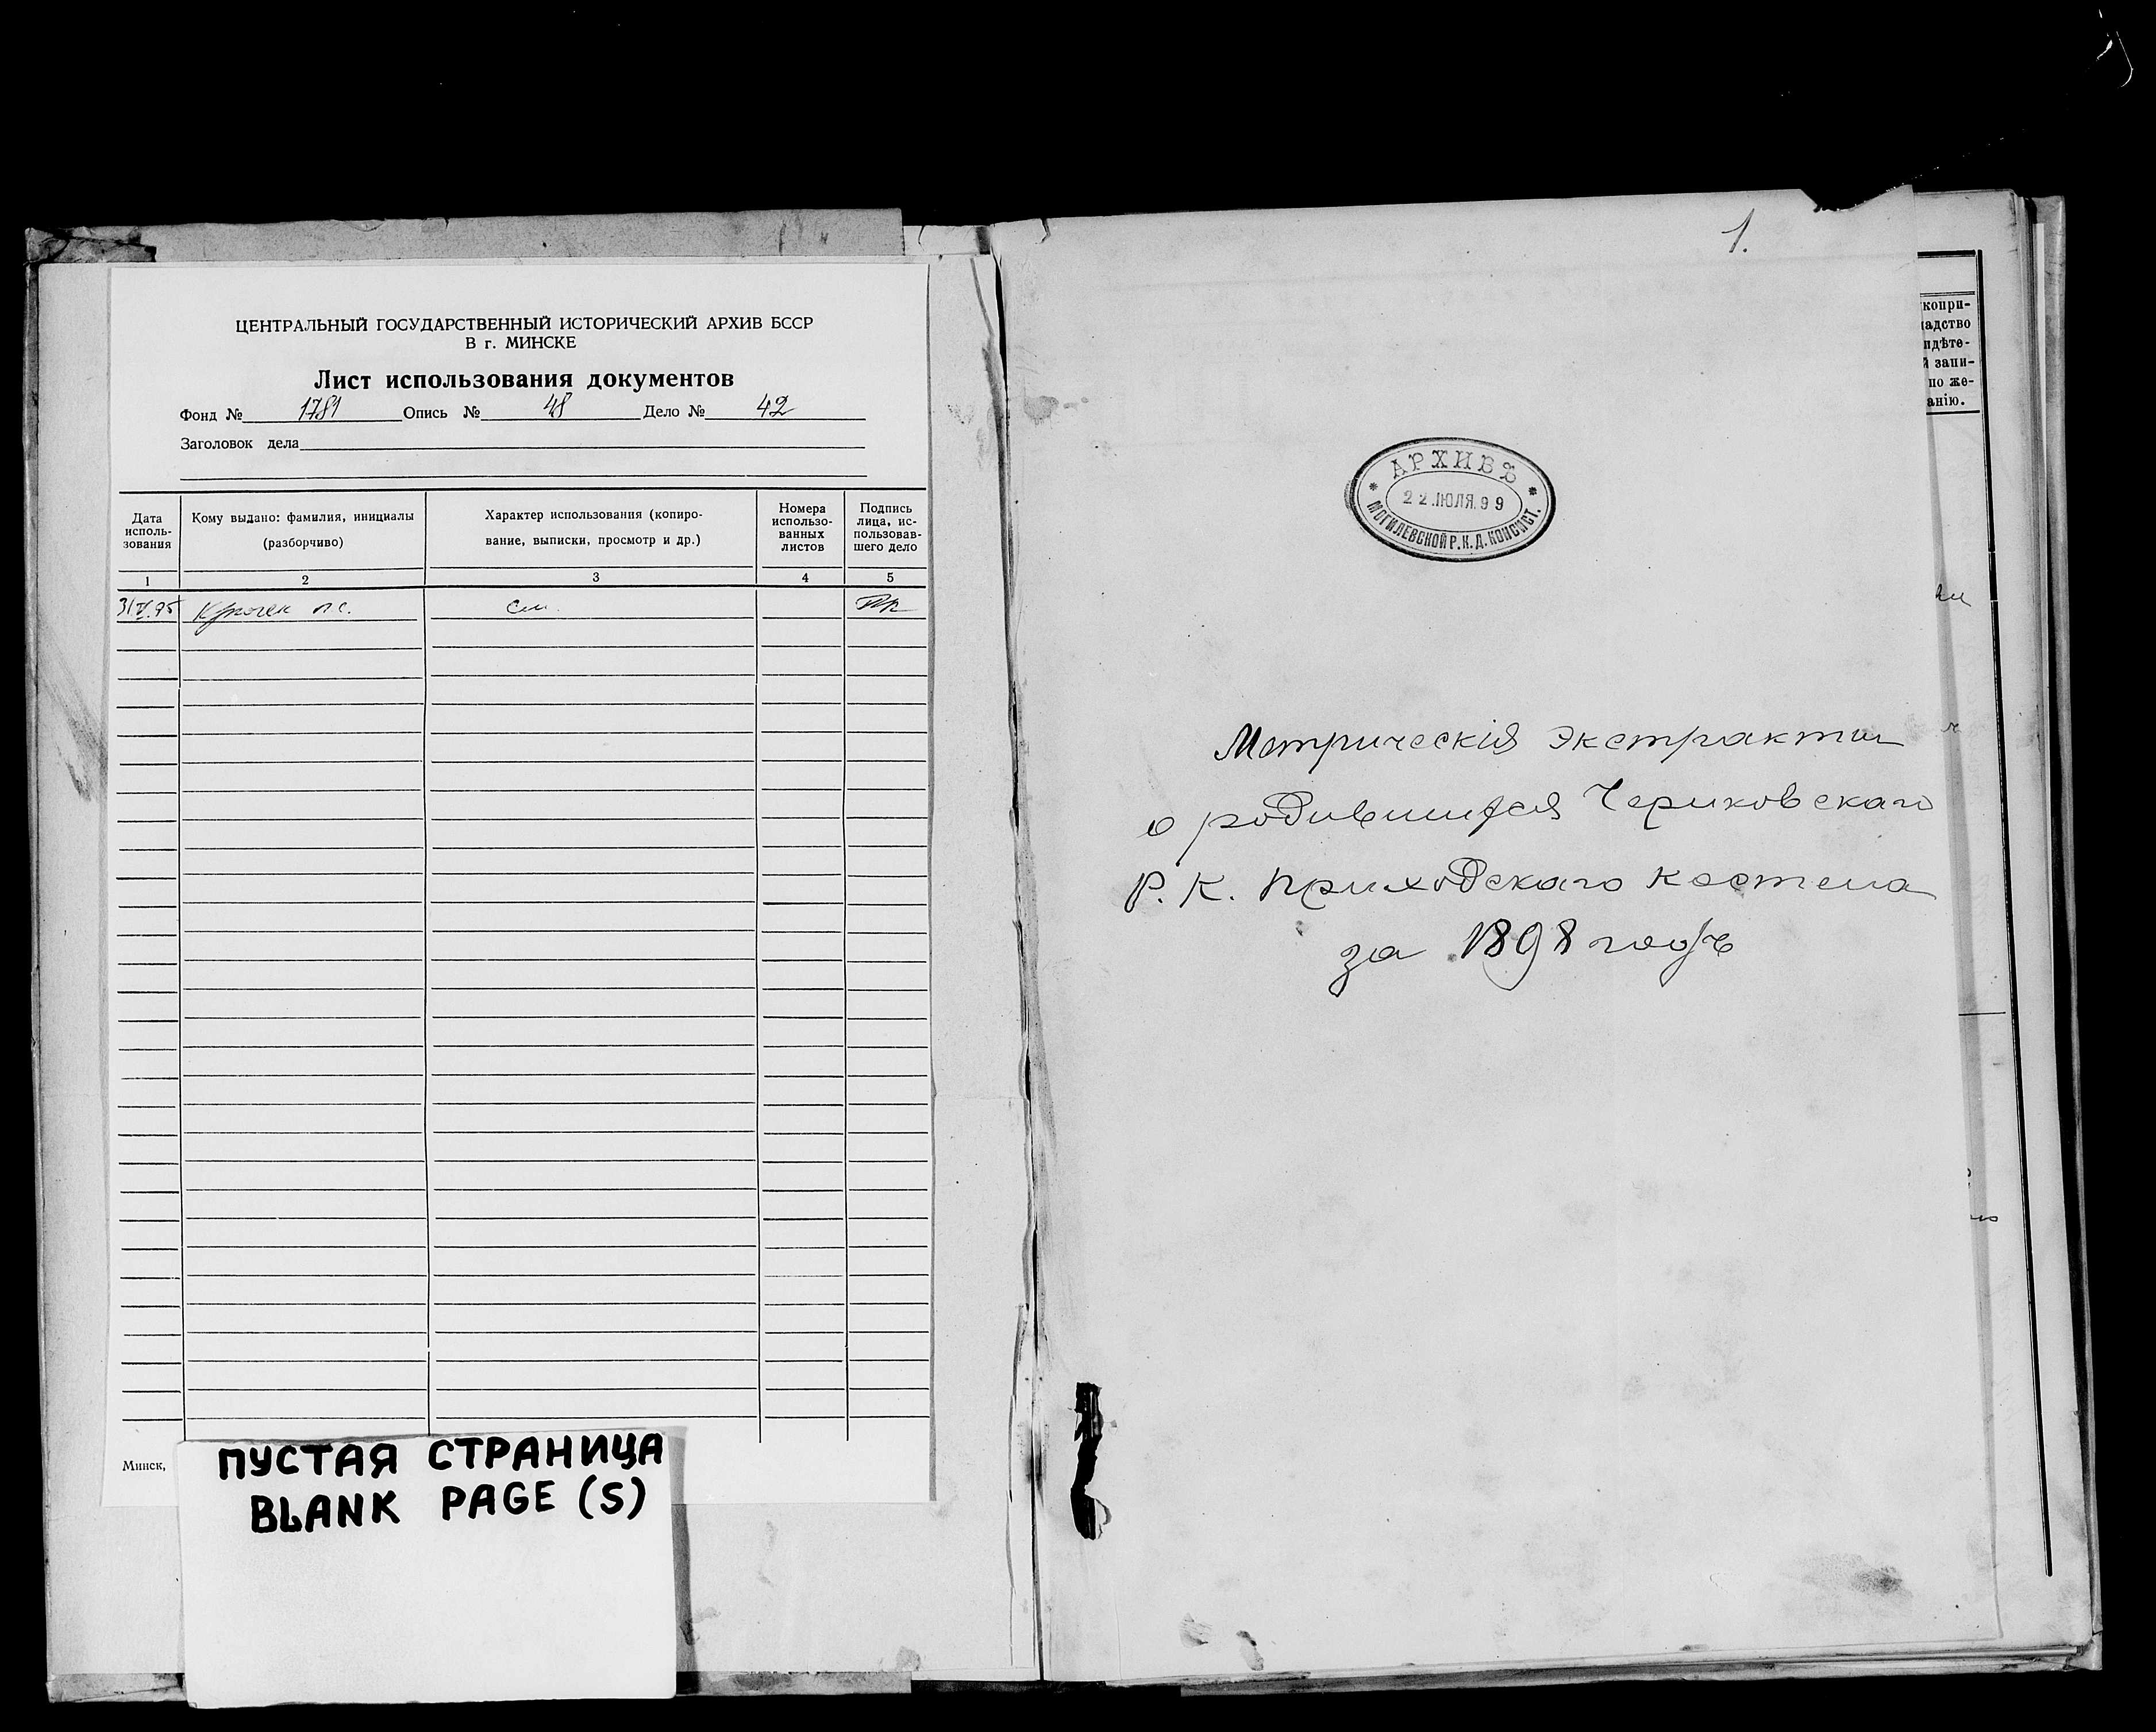 ЦЕНТРАЛЬНЫЙ ГОСУДАРСТВЕННЫЙ ИСТОРИЧЕСКИЙ АРХИВ БССР
В г. МИНСКЕ
Лист использования документов
Фонд № 1781 Опись № 48 Дело № 42
Заголовок дела
Дата исполь-зования
Кому выдано: фамилия, инициалы (разборчиво)
Характер использования (копиро-вание, выписки, просмотр и др.)
Номера использо-ванных листов
Подпись лица, ис-пользовав-шего дело
1 2 3 4 5
см.
Минск,
ПУСТАЯ СТРАНИЦА
BLANK PAGE (S)
1.
АРХИВЪ
22.ІЮЛЯ.99
МОГИЛЕВСКОЙ Р.К.Д. КОНСИСТ.
Метрическія экстракты
о родившихся Чериковскаго
Р. К. приходскаго костела
за 1898 годъ
копри-
адство
идѣте-
й запи-
по же-
анію.